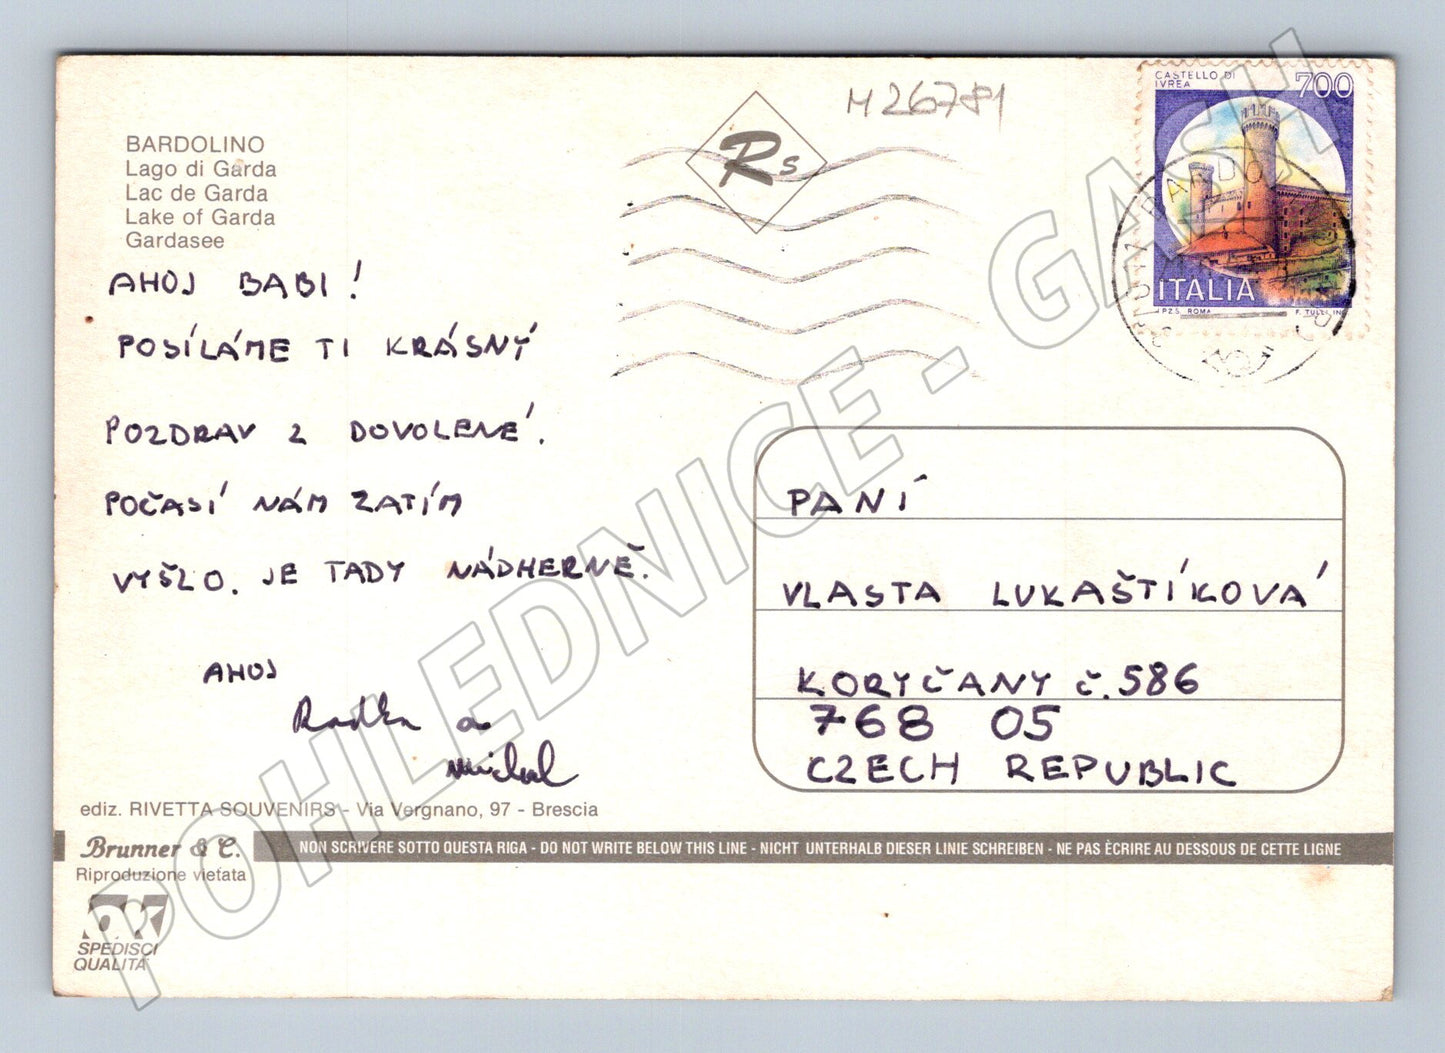 M 26781
CASTELLO DI
IVREA
700
ITALIA
I.P.Z.S. ROMA
BARDO
Rs
BARDOLINO
Lago di Garda
Lac de Garda
Lake of Garda
Gardasee
AHOJ BABI!
POSÍLÁME TI KRÁSNÝ
POZDRAV Z DOVOLENÉ.
POČASÍ NÁM ZATÍM
VYŠLO. JE TADY NÁDHERNĚ.
AHOJ
Radka a
Michal
PANÍ
VLASTA LUKAŠTÍKOVÁ
KORYČANY č. 586
768 05
CZECH REPUBLIC
ediz. RIVETTA SOUVENIRS - Via Vergnano, 97 - Brescia
Brunner & C.
Riproduzione vietata
NON SCRIVERE SOTTO QUESTA RIGA - DO NOT WRITE BELOW THIS LINE - NICHT UNTERHALB DIESER LINIE SCHREIBEN - NE PAS ÈCRIRE AU DESSOUS DE CETTE LIGNE
SPEDISCI
QUALITA'
POHLEDNICE - GASH